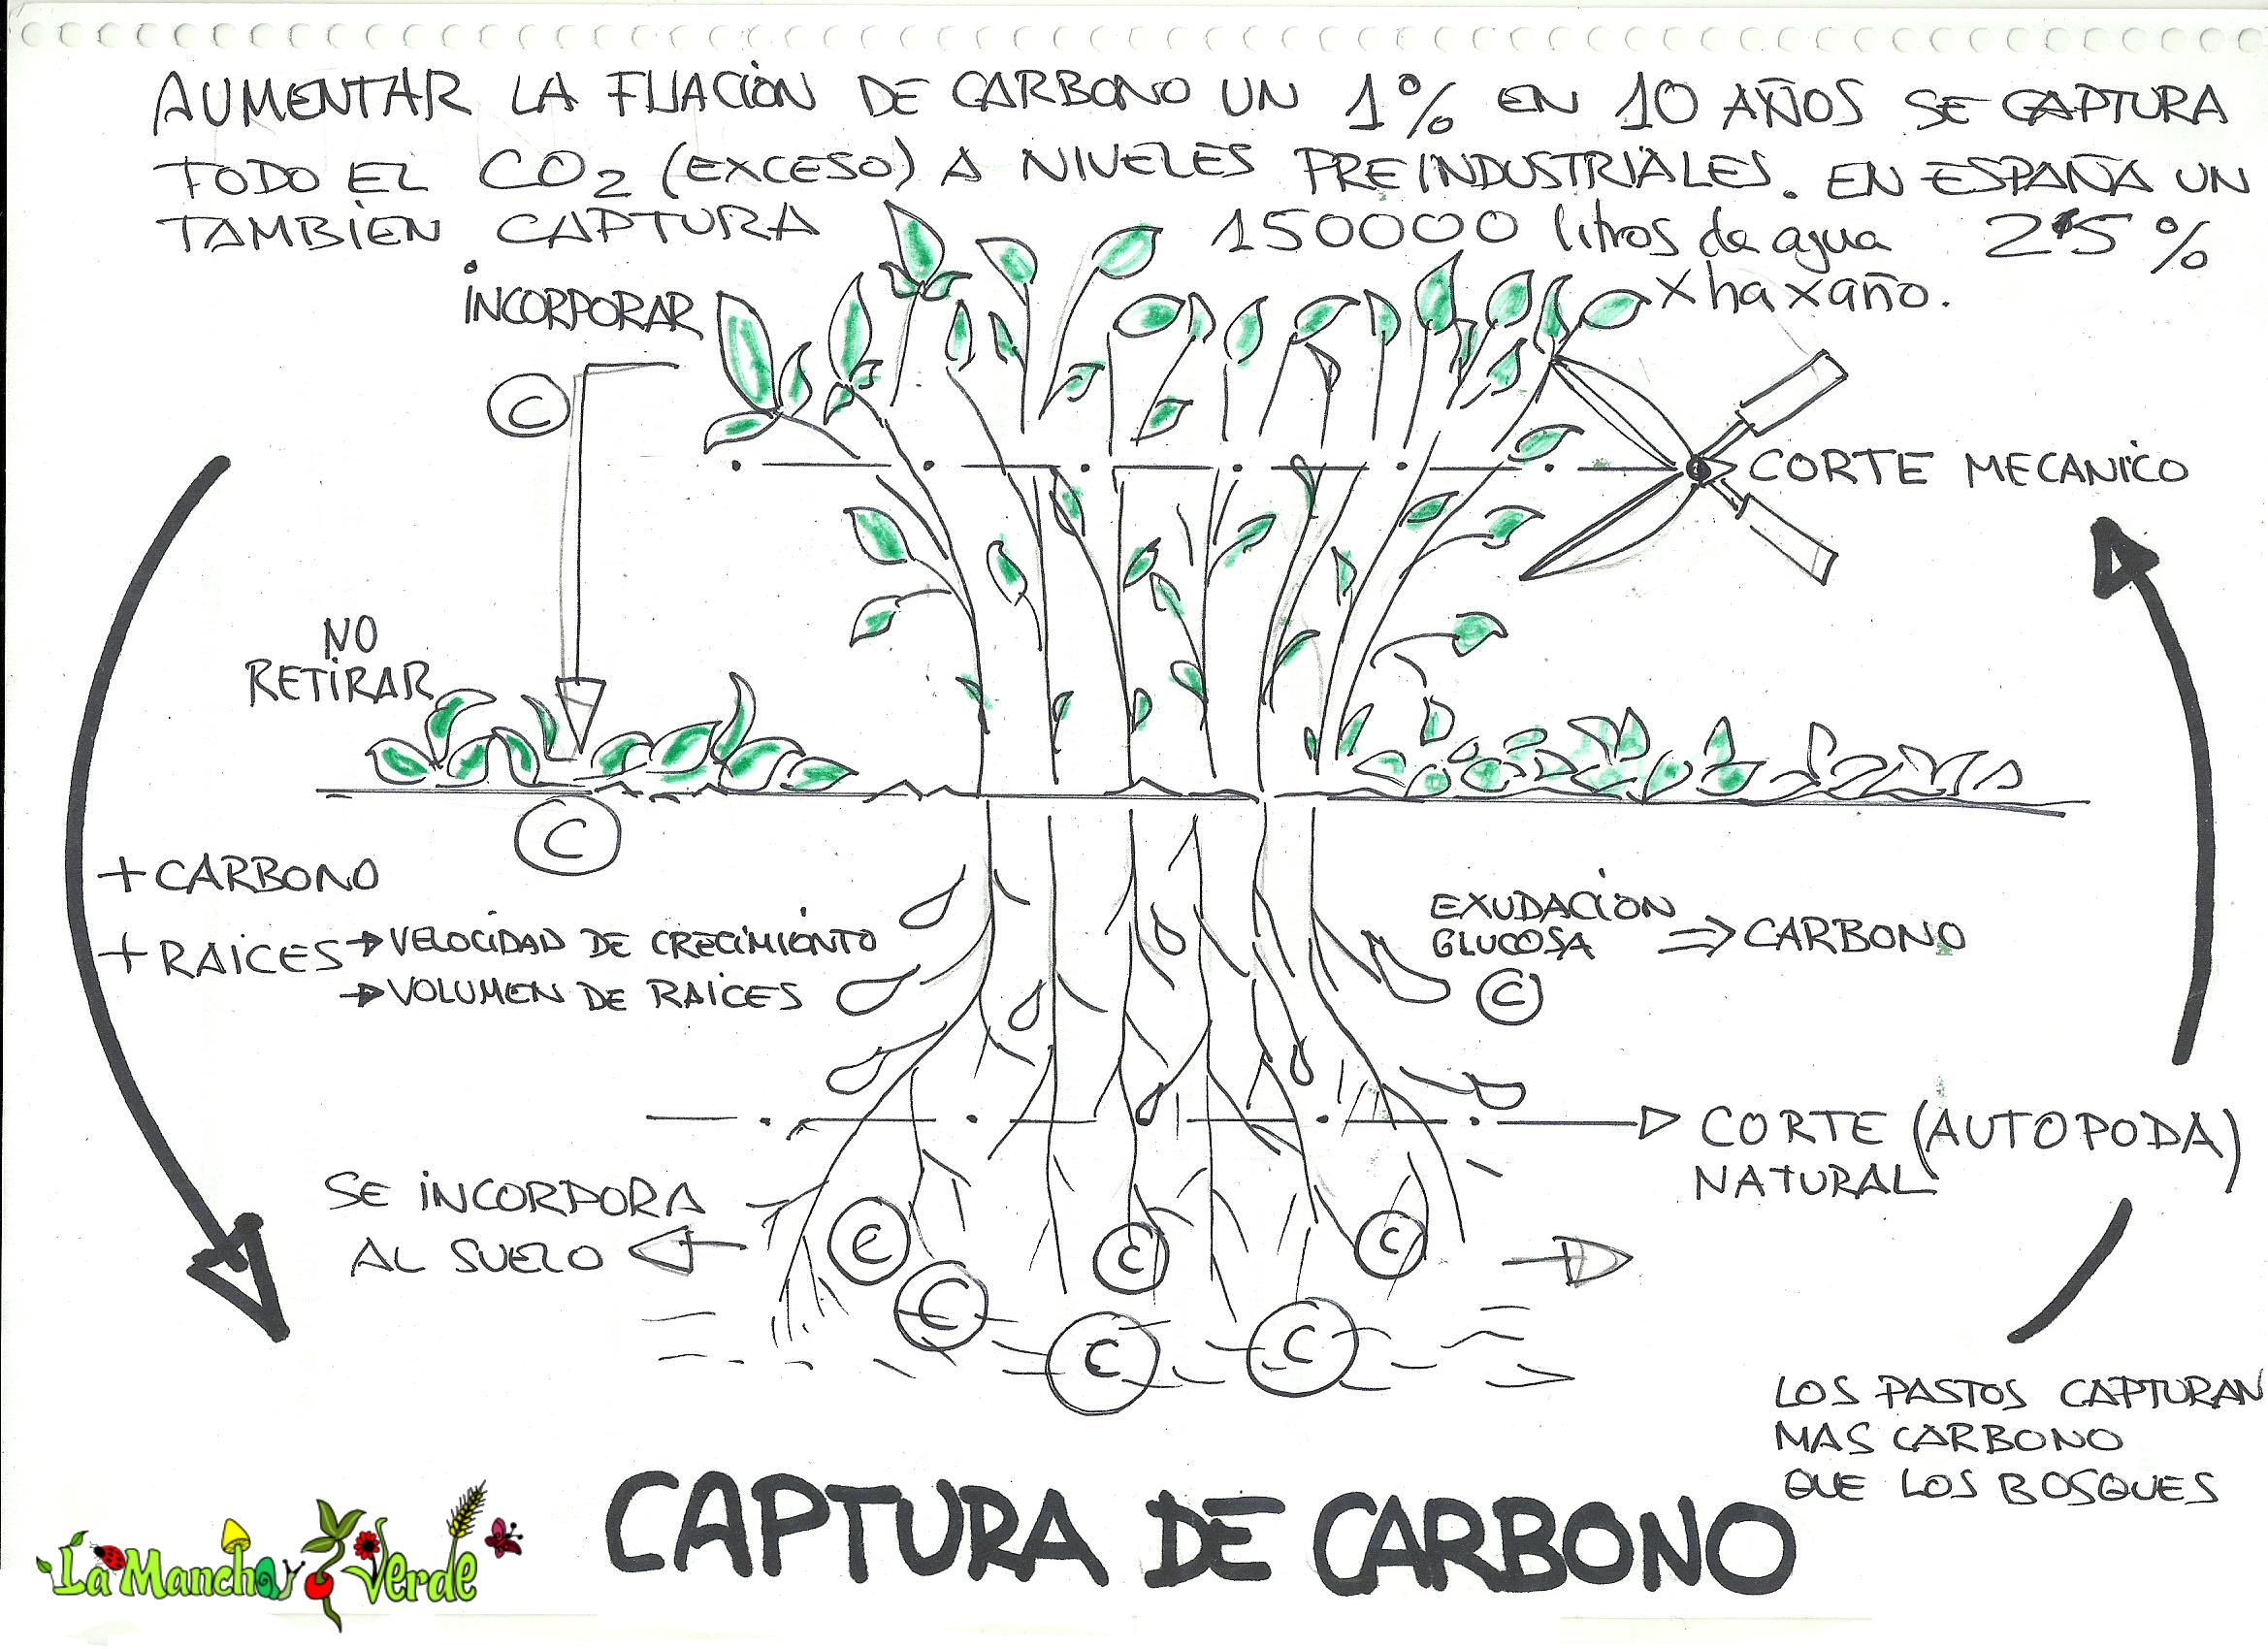 AUMENTAR LA FIJACIÓN DE CARBONO UN 1% EN 10 AÑOS SE CAPTURA
TODO EL CO2 (EXCESO) A NIVELES PREINDUSTRIALES. EN ESPAÑA UN
TAMBIEN CAPTURA 150000 litros de agua 2'5%
x ha x año.
INCORPORAR
C
CORTE MECANICO
NO
RETIRAR
C
+ CARBONO
+ RAICES → VELOCIDAD DE CRECIMIENTO
→ VOLUMEN DE RAICES
EXUDACION
GLUCOSA ⇒ CARBONO
C
CORTE (AUTOPODA)
NATURAL
SE INCORPORA
AL SUELO
C C C
C C C
LOS PASTOS CAPTURAN
MAS CARBONO
QUE LOS BOSQUES
CAPTURA DE CARBONO
La Mancha Verde